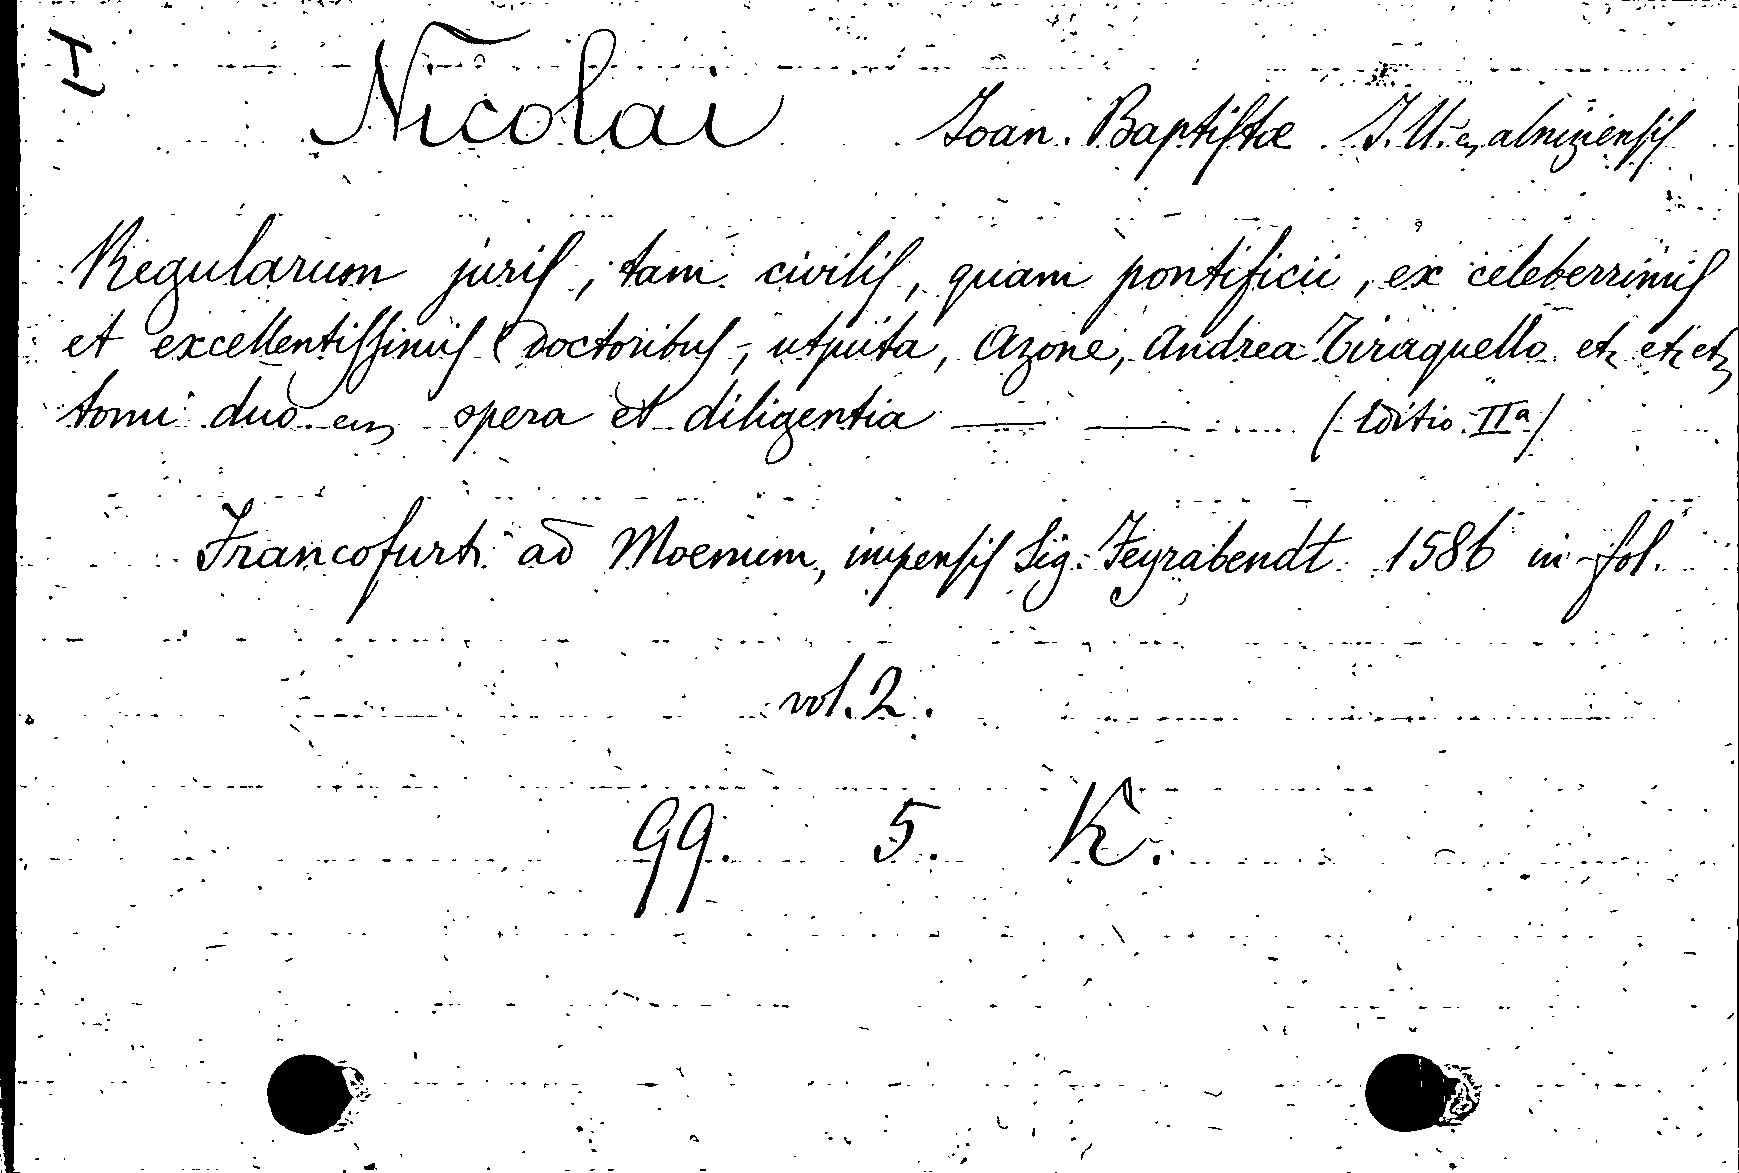 I
Nicolai Joan. Baptistæ J. U. c, alniziensis
Regularum juris, tam civilis, quam pontificii, ex celeberrimis
et excellentissimis Doctoribus, utputa, Azone, Andrea Tiraquello etc etc etc
tomi duo ... opera et diligentia — — (Editio IIa)
Francofurti ad Moenum, impensis Sig. Feyrabendt 1586 in fol.
vol. 2.
99. 5. K.